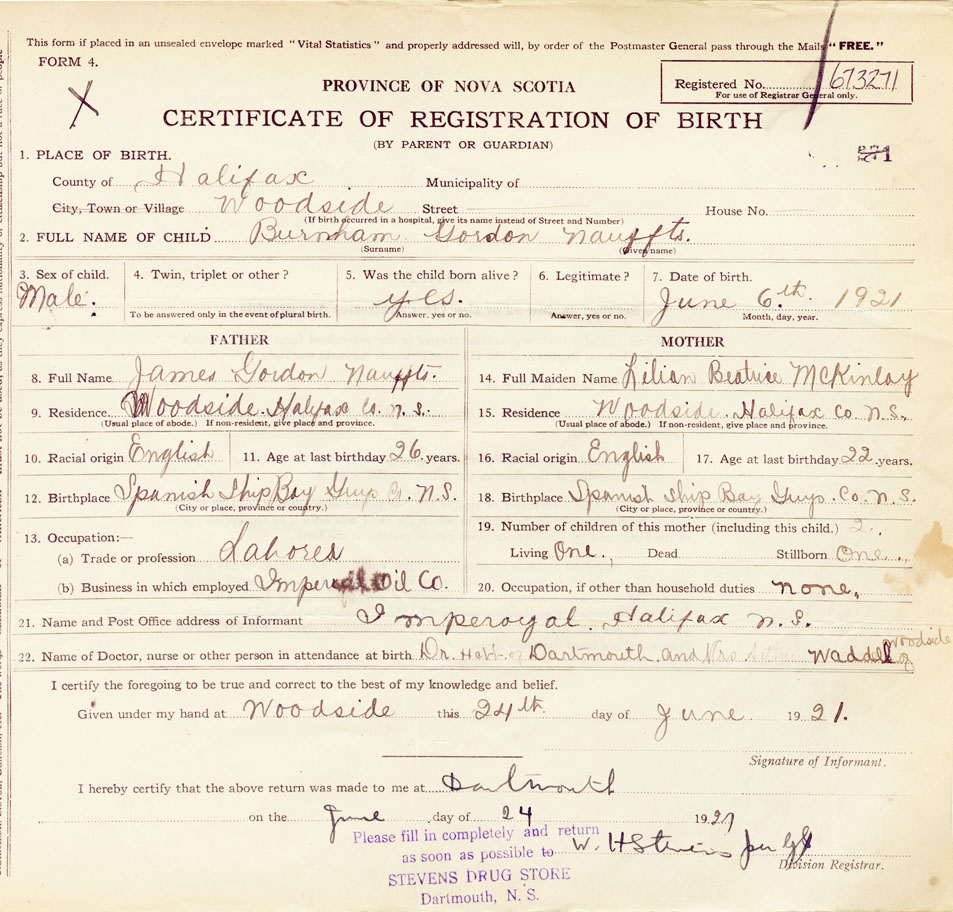 This form if placed in an unsealed envelope marked "Vital Statistics" and properly addressed will, by order of the Postmaster General pass through the Mails "FREE."
FORM 4.
X
Registered No. 673271
For use of Registrar General only.
PROVINCE OF NOVA SCOTIA
CERTIFICATE OF REGISTRATION OF BIRTH
(BY PARENT OR GUARDIAN)
1. PLACE OF BIRTH.
County of Halifax Municipality of
City, Town or Village Woodside Street House No.
(If birth occurred in a hospital, give its name instead of Street and Number)
2. FULL NAME OF CHILD Burnham Gordon Nauffts.
(Surname) (Given name)
3. Sex of child. 4. Twin, triplet or other? 5. Was the child born alive? 6. Legitimate? 7. Date of birth.
Male. yes. June 6.th 1921
To be answered only in the event of plural birth. Answer, yes or no. Answer, yes or no. Month, day, year.
FATHER MOTHER
8. Full Name James Gordon Nauffts. 14. Full Maiden Name Lilian Beatrice McKinlay
9. Residence Woodside. Halifax Co. N. S. 15. Residence Woodside. Halifax Co. N. S.
(Usual place of abode.) If non-resident, give place and province. (Usual place of abode.) If non-resident, give place and province.
10. Racial origin English 11. Age at last birthday 26 years. 16. Racial origin English 17. Age at last birthday 22 years.
12. Birthplace Spanish Ship Bay Guys Co. N.S. 18. Birthplace Spanish Ship Bay Guys. Co. N. S.
(City or place, province or country.) (City or place, province or country.)
13. Occupation:— 19. Number of children of this mother (including this child.) 2.
(a) Trade or profession Laborer Living One. Dead Stillborn One.
(b) Business in which employed Imperial Oil Co. 20. Occupation, if other than household duties none.
21. Name and Post Office address of Informant Imperoyal. Halifax N. S.
22. Name of Doctor, nurse or other person in attendance at birth Dr. of Dartmouth. and Mrs Waddell of Woodside
I certify the foregoing to be true and correct to the best of my knowledge and belief.
Given under my hand at Woodside this 24th day of June 1921.
Signature of Informant.
I hereby certify that the above return was made to me at Dartmouth
on the June day of 24 1921
W. H Stevens per
Division Registrar.
Please fill in completely and return
as soon as possible to
STEVENS DRUG STORE
Dartmouth, N. S.